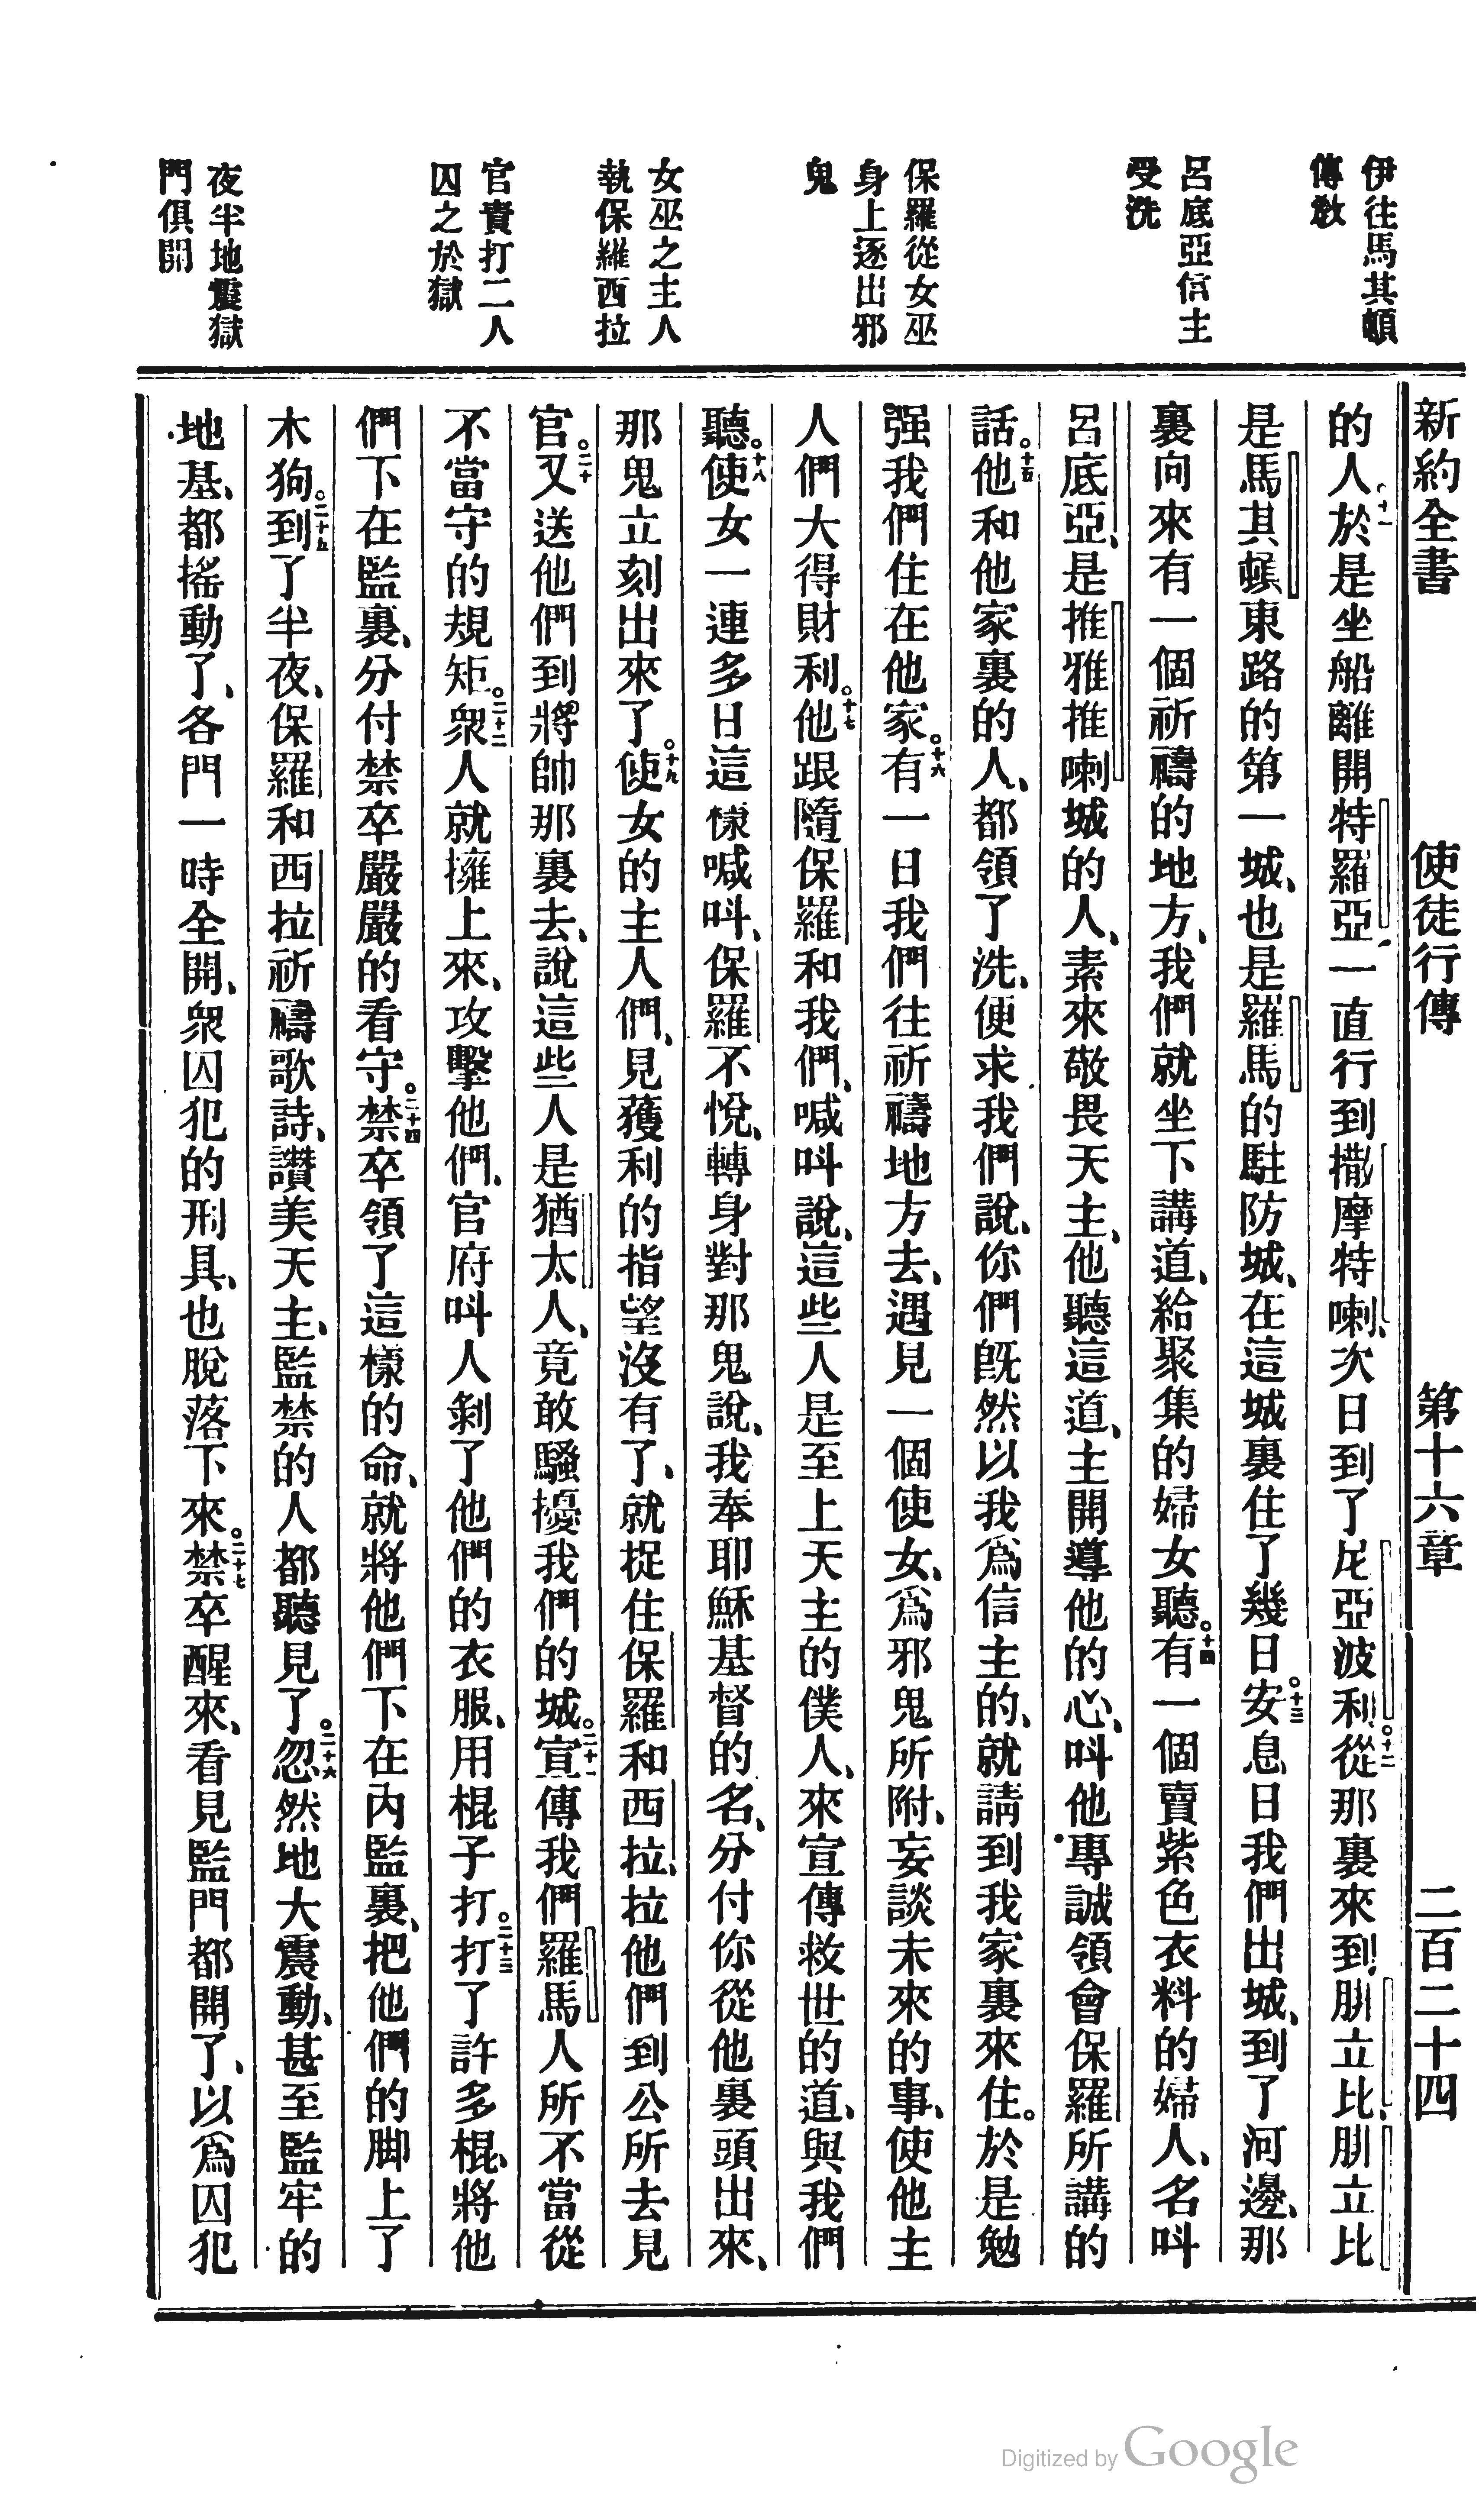 新約全書 使徒行傳 第十六章 二百二十四
伊往馬其頓
傳敎
呂底亞信主
受洗
保羅從女巫
身上逐出邪
鬼
女巫之主人
執保羅西拉
官責打二人
囚之於獄
夜半地震獄
門俱開
的人。十一於是坐船離開特羅亞、一直行到撒摩特喇、次日到了尼亞波利。十二從那裏來到腓立比、腓立比
是馬其頓東路的第一城、也是羅馬的駐防城、在這城裏住了幾日。十三安息日我們出城、到了河邊、那
裏向來有一個祈禱的地方、我們就坐下講道、給聚集的婦女聽。十四有一個賣紫色衣料的婦人、名呌
呂底亞、是推雅推喇城的人、素來敬畏天主、他聽這道、主開導他的心、呌他專誠領會保羅所講的
話。十五他和他家裏的人、都領了洗、便求我們說、你們旣然以我爲信主的、就請到我家裏來住。於是勉
强我們住在他家。十六有一日我們往祈禱地方去、遇見一個使女、爲邪鬼所附、妄談未來的事、使他主
人們大得財利。十七他跟隨保羅和我們、喊呌說、這些人是至上天主的僕人、來宣傳救世的道、與我們
聽。十八使女一連多日這樣喊呌、保羅不悅、轉身對那鬼說、我奉耶穌基督的名、分付你從他裏頭出來、
那鬼立刻出來了。十九使女的主人們、見獲利的指望沒有了、就捉住保羅和西拉、拉他們到公所去見
官。二十又送他們到將帥那裏去、說這些人是猶太人、竟敢騷擾我們的城。二十一宣傳我們羅馬人所不當從
不當守的規矩。二十二衆人就擁上來、攻擊他們、官府呌人剝了他們的衣服、用棍子打。二十三打了許多棍、將他
們下在監裏、分付禁卒嚴嚴的看守。二十四禁卒領了這樣的命、就將他們下在內監裏、把他們的脚上了
木狗。二十五到了半夜、保羅和西拉祈禱歌詩、讚美天主、監禁的人都聽見了。二十六忽然地大震動、甚至監牢的
地基、都搖動了、各門一時全開、衆囚犯的刑具、也脫落下來。二十七禁卒醒來、看見監門都開了、以爲囚犯
Digitized by Google